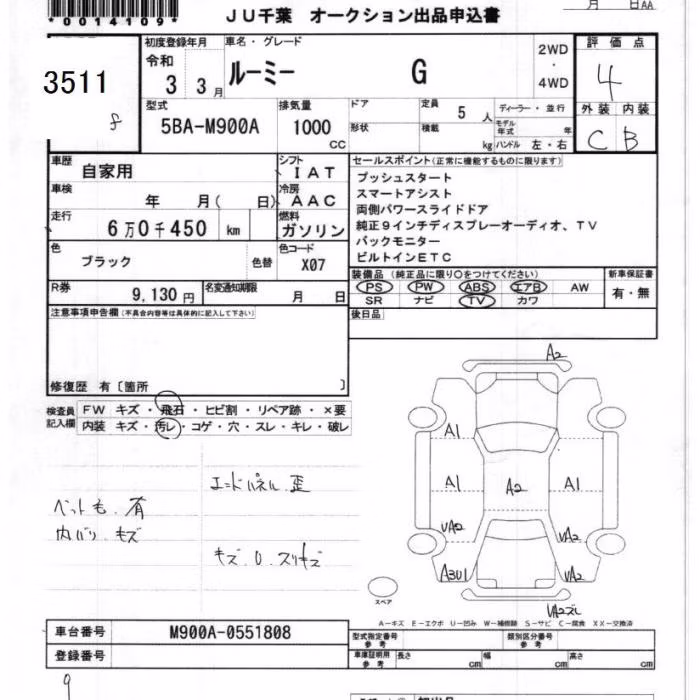 *0014109*
JU千葉 オークション出品申込書
月 日AA
3511
8
初度登録年月
令和
3 3月
車名・グレード
ルーミー G
2WD
・
4WD
評価点
4
外装 内装
C B
型式
5BA-M900A
排気量
1000
CC
ドア
形状
定員
5 人
積載
kg
ディーラー・並行
モデル
年式 年
ハンドル 左・右
車歴
自家用
シフト
IAT
車検
年 月( 日)
冷房
AAC
走行
6万0千450 km
燃料
ガソリン
色
ブラック
色替
色コード
X07
R券
9,130円
名変通知期限
月 日
セールスポイント(正常に機能するものに限ります)
プッシュスタート
スマートアシスト
両側パワースライドドア
純正9インチディスプレーオーディオ、TV
バックモニター
ビルトインETC
装備品 (純正品に限り○をつけてください)
PS PW ABS エアB AW
SR ナビ TV カワ
新車保証書
有・無
後日品
注意事項申告欄(不具合内容等は具体的に記入して下さい)
修復歴 有〔箇所 〕
検査員
記入欄
FW キズ・飛石・ヒビ割・リペア跡・×要
内装 キズ・汚レ・コゲ・穴・スレ・キレ・破レ
エンドパネル 歪
ペットも.有
内バリ.キズ
キズ.U.スリキズ
A2
A1
A1
A2
A1
UA2
UA2
A3U1
UA2
UA2ズレ
スペア
A－キズ E－エクボ U－凹み W－補修跡 S－サビ C－腐食 XX－交換済
車台番号
M900A-0551808
登録番号
型式指定番号
参考
類別区分番号
参考
車庫証明用
参考
長さ cm
幅 cm
高さ cm
9